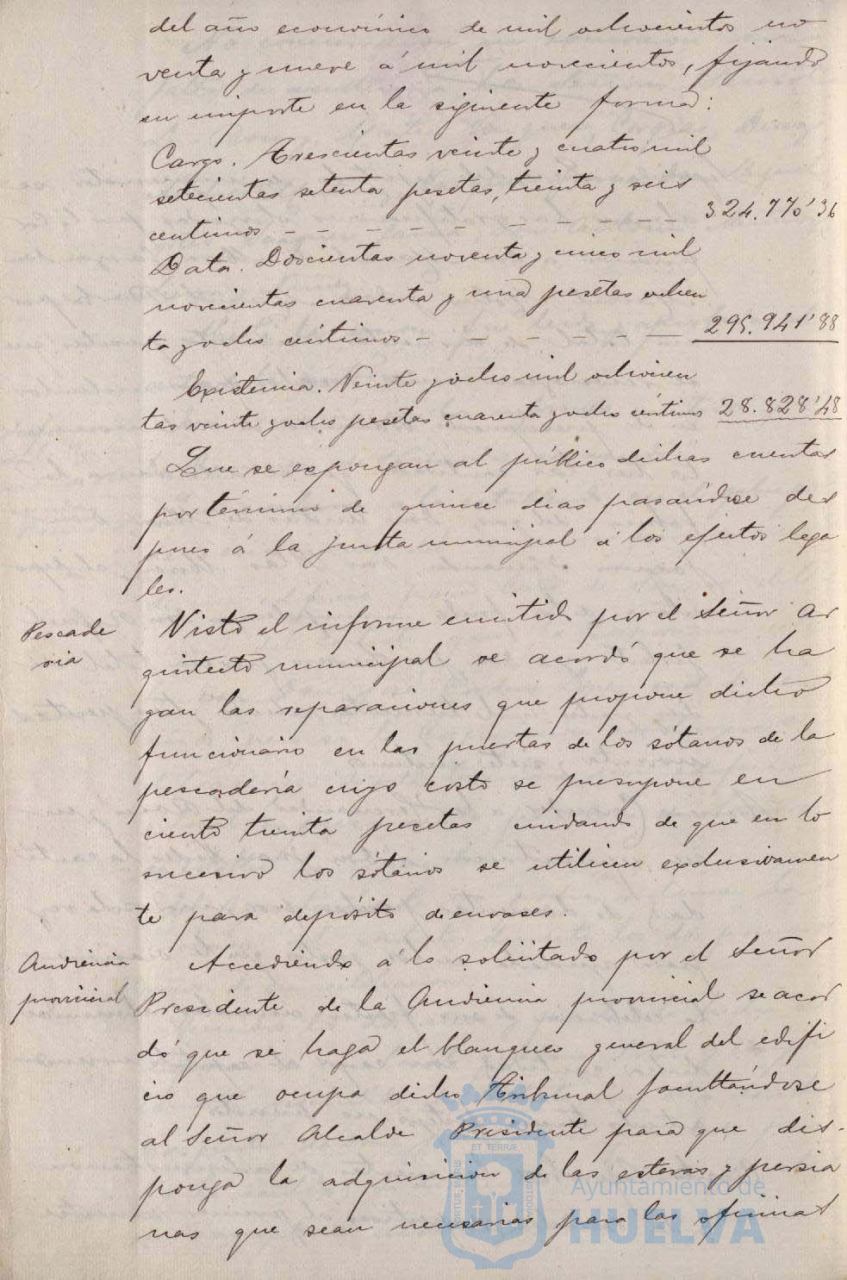 del año económico de mil ochocientos no
venta y nueve á mil novecientos, fijando
su importe en la siguiente forma:
Cargo. Trescientas veinte y cuatro mil
setecientas setenta pesetas, treinta y seis
centimos - - - - - - - - - - 324.770'36
Data. Doscientas noventa y cinco mil
novecientas cuarenta y una pesetas ochen
ta y ocho céntimos - - - - - - - 295.941'88
Existencia. Veinte y ocho mil ochocien
tas veinte y ocho pesetas cuarenta y ocho céntimos 28.828'48
Que se expongan al público dichas cuentas
por término de quince dias pasándose des
pues á la junta municipal á los efectos lega
les.
Pescade
ria
Visto el informe emitido por el Señor Ar
quitecto municipal se acordó que se ha
gan las reparaciones que propone dicho
funcionario en las puertas de los sótanos de la
pescadería cuyo costo se presupone en
ciento treinta pecetas cuidando de que en lo
sucesivo los sótanos se utilicen exclusivamen
te para depósito de envases.
Audiencia
provincial
Accediendo á lo solicitado por el Señor
Presidente de la Audiencia provincial se acor
dó que se haga el blanqueo general del edifi
cio que ocupa dicho Tribunal facultándose
al Señor Alcalde Presidente para que dis-
ponga la adquisicion de las esteras y persia
nas que sean necesarias para las oficinas
Ayuntamiento de
HUELVA